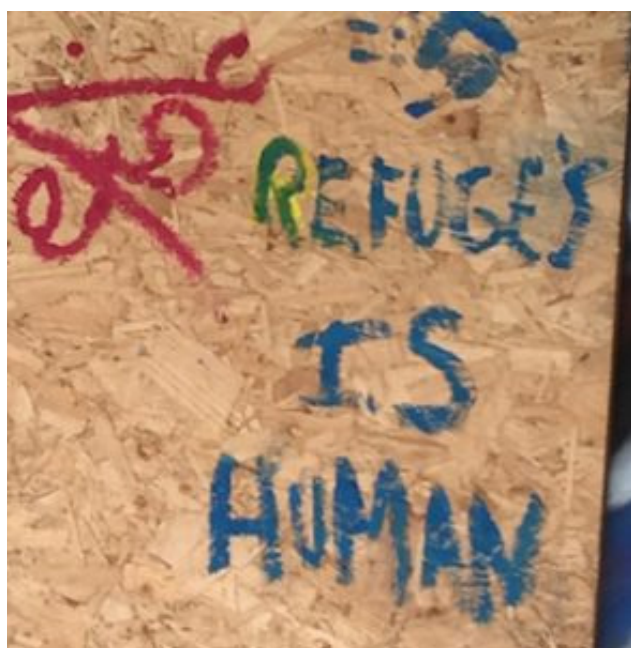 REFUGE'S
IS
HUMAN